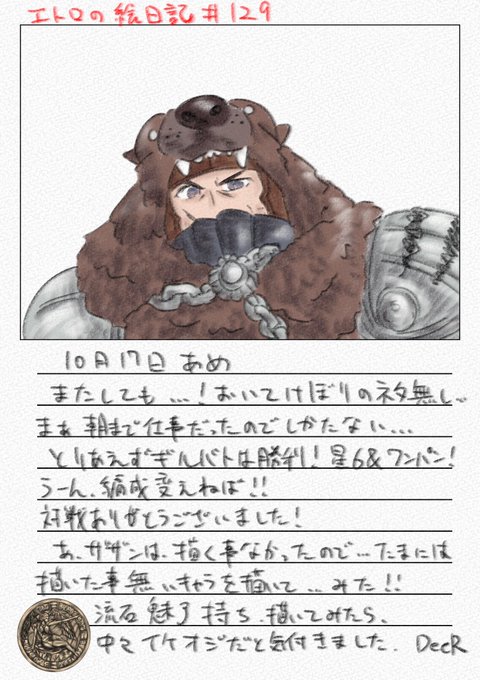 エトロの絵日記#129
10月17日 あめ
またしても…!おいてけぼりのネタ無し…
まぁ朝まで仕事だったのでしかたない…
とりあえずギルバトは勝利!星6&ワンパン!
うーん、編成変えねば!!
対戦ありがとうございました!
あ、ガザンは、描く事なかったので…たまには
描いた事無いキャラを描いて…みた!!
流石魅了持ち、描いてみたら、
中々イケオジだと気付きました. DecR